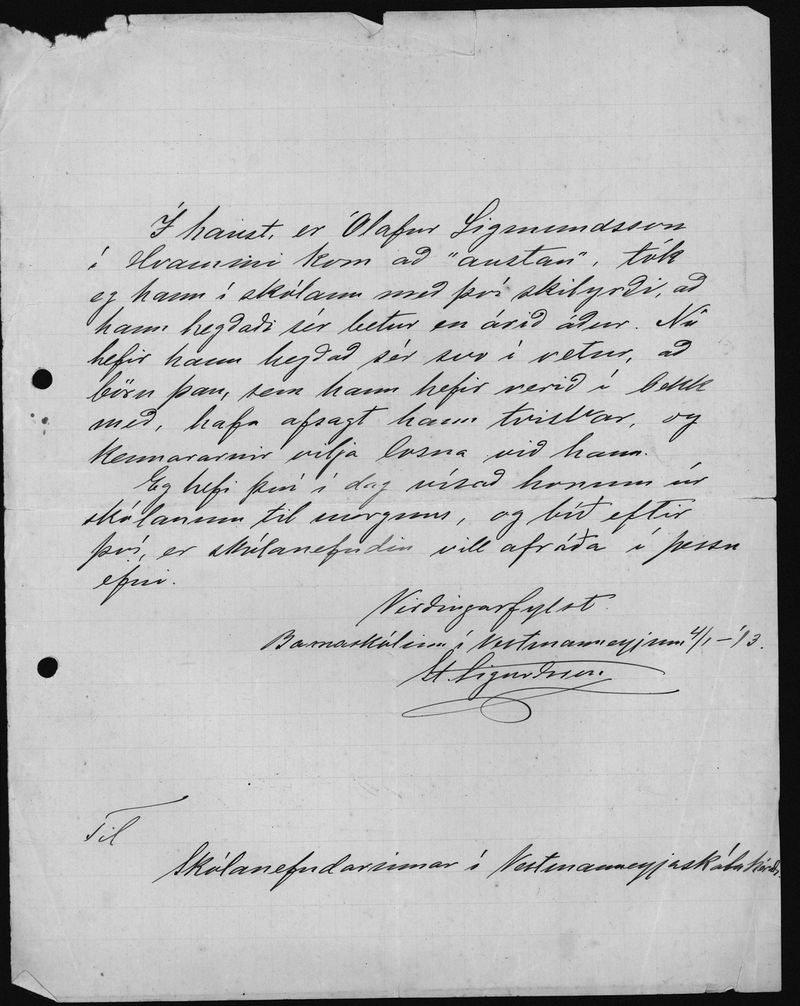 Í haust, er Ólafur Sigmundsson
í Hvammi kom að "austan", tók
eg hann í skólann með því skilyrði, að
hann hegðaði sér betur en árið áður. Nú
hefir hann hegðað sér svo í vetur, að
börn þau, sem hann hefir verið í bekk
með, hafa afsagt hann tvisvar, og
kennararnir vilja losna við hann.
Eg hefi því í dag vísað honum úr
skólanum til morguns, og bíð eftir
því, er skólanefndin vill afráða í þessu
efni.
Virðingarfylst.
Barnaskólinn í Vestmannaeyjum 4/1 - '13.
St. Sigurðsson.
Til
Skólanefndarinnar í Vestmanneyjaskóla